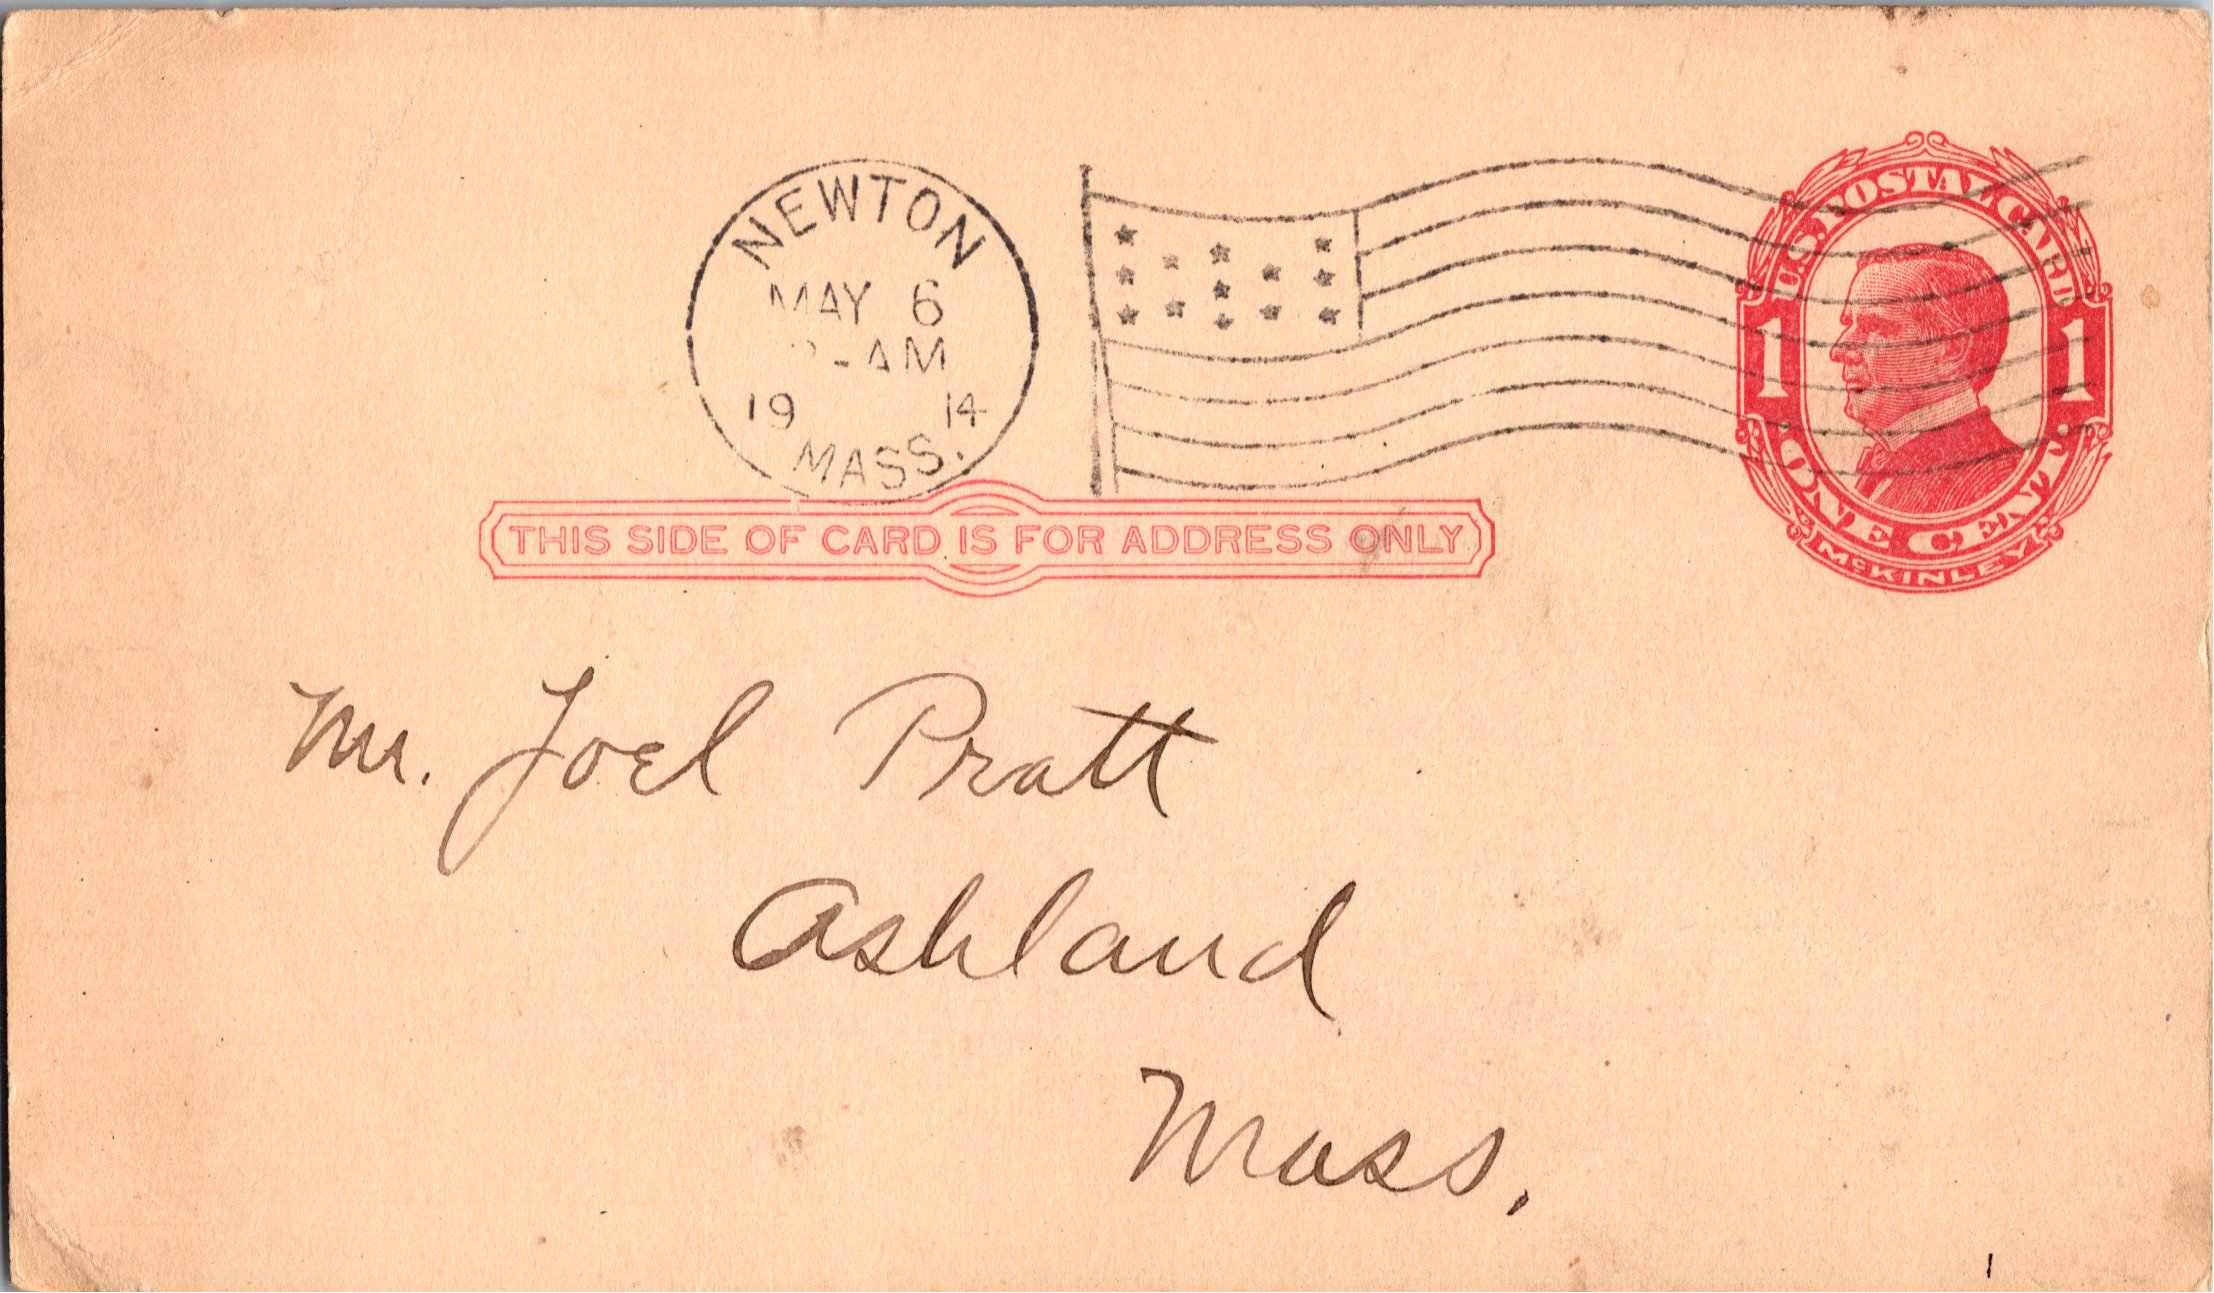 NEWTON
MAY 6
-AM
19 14
MASS.
U.S. POSTAL CARD
1 1
ONE CENT
McKINLEY
THIS SIDE OF CARD IS FOR ADDRESS ONLY
Mr. Joel Pratt
Ashland
Mass.